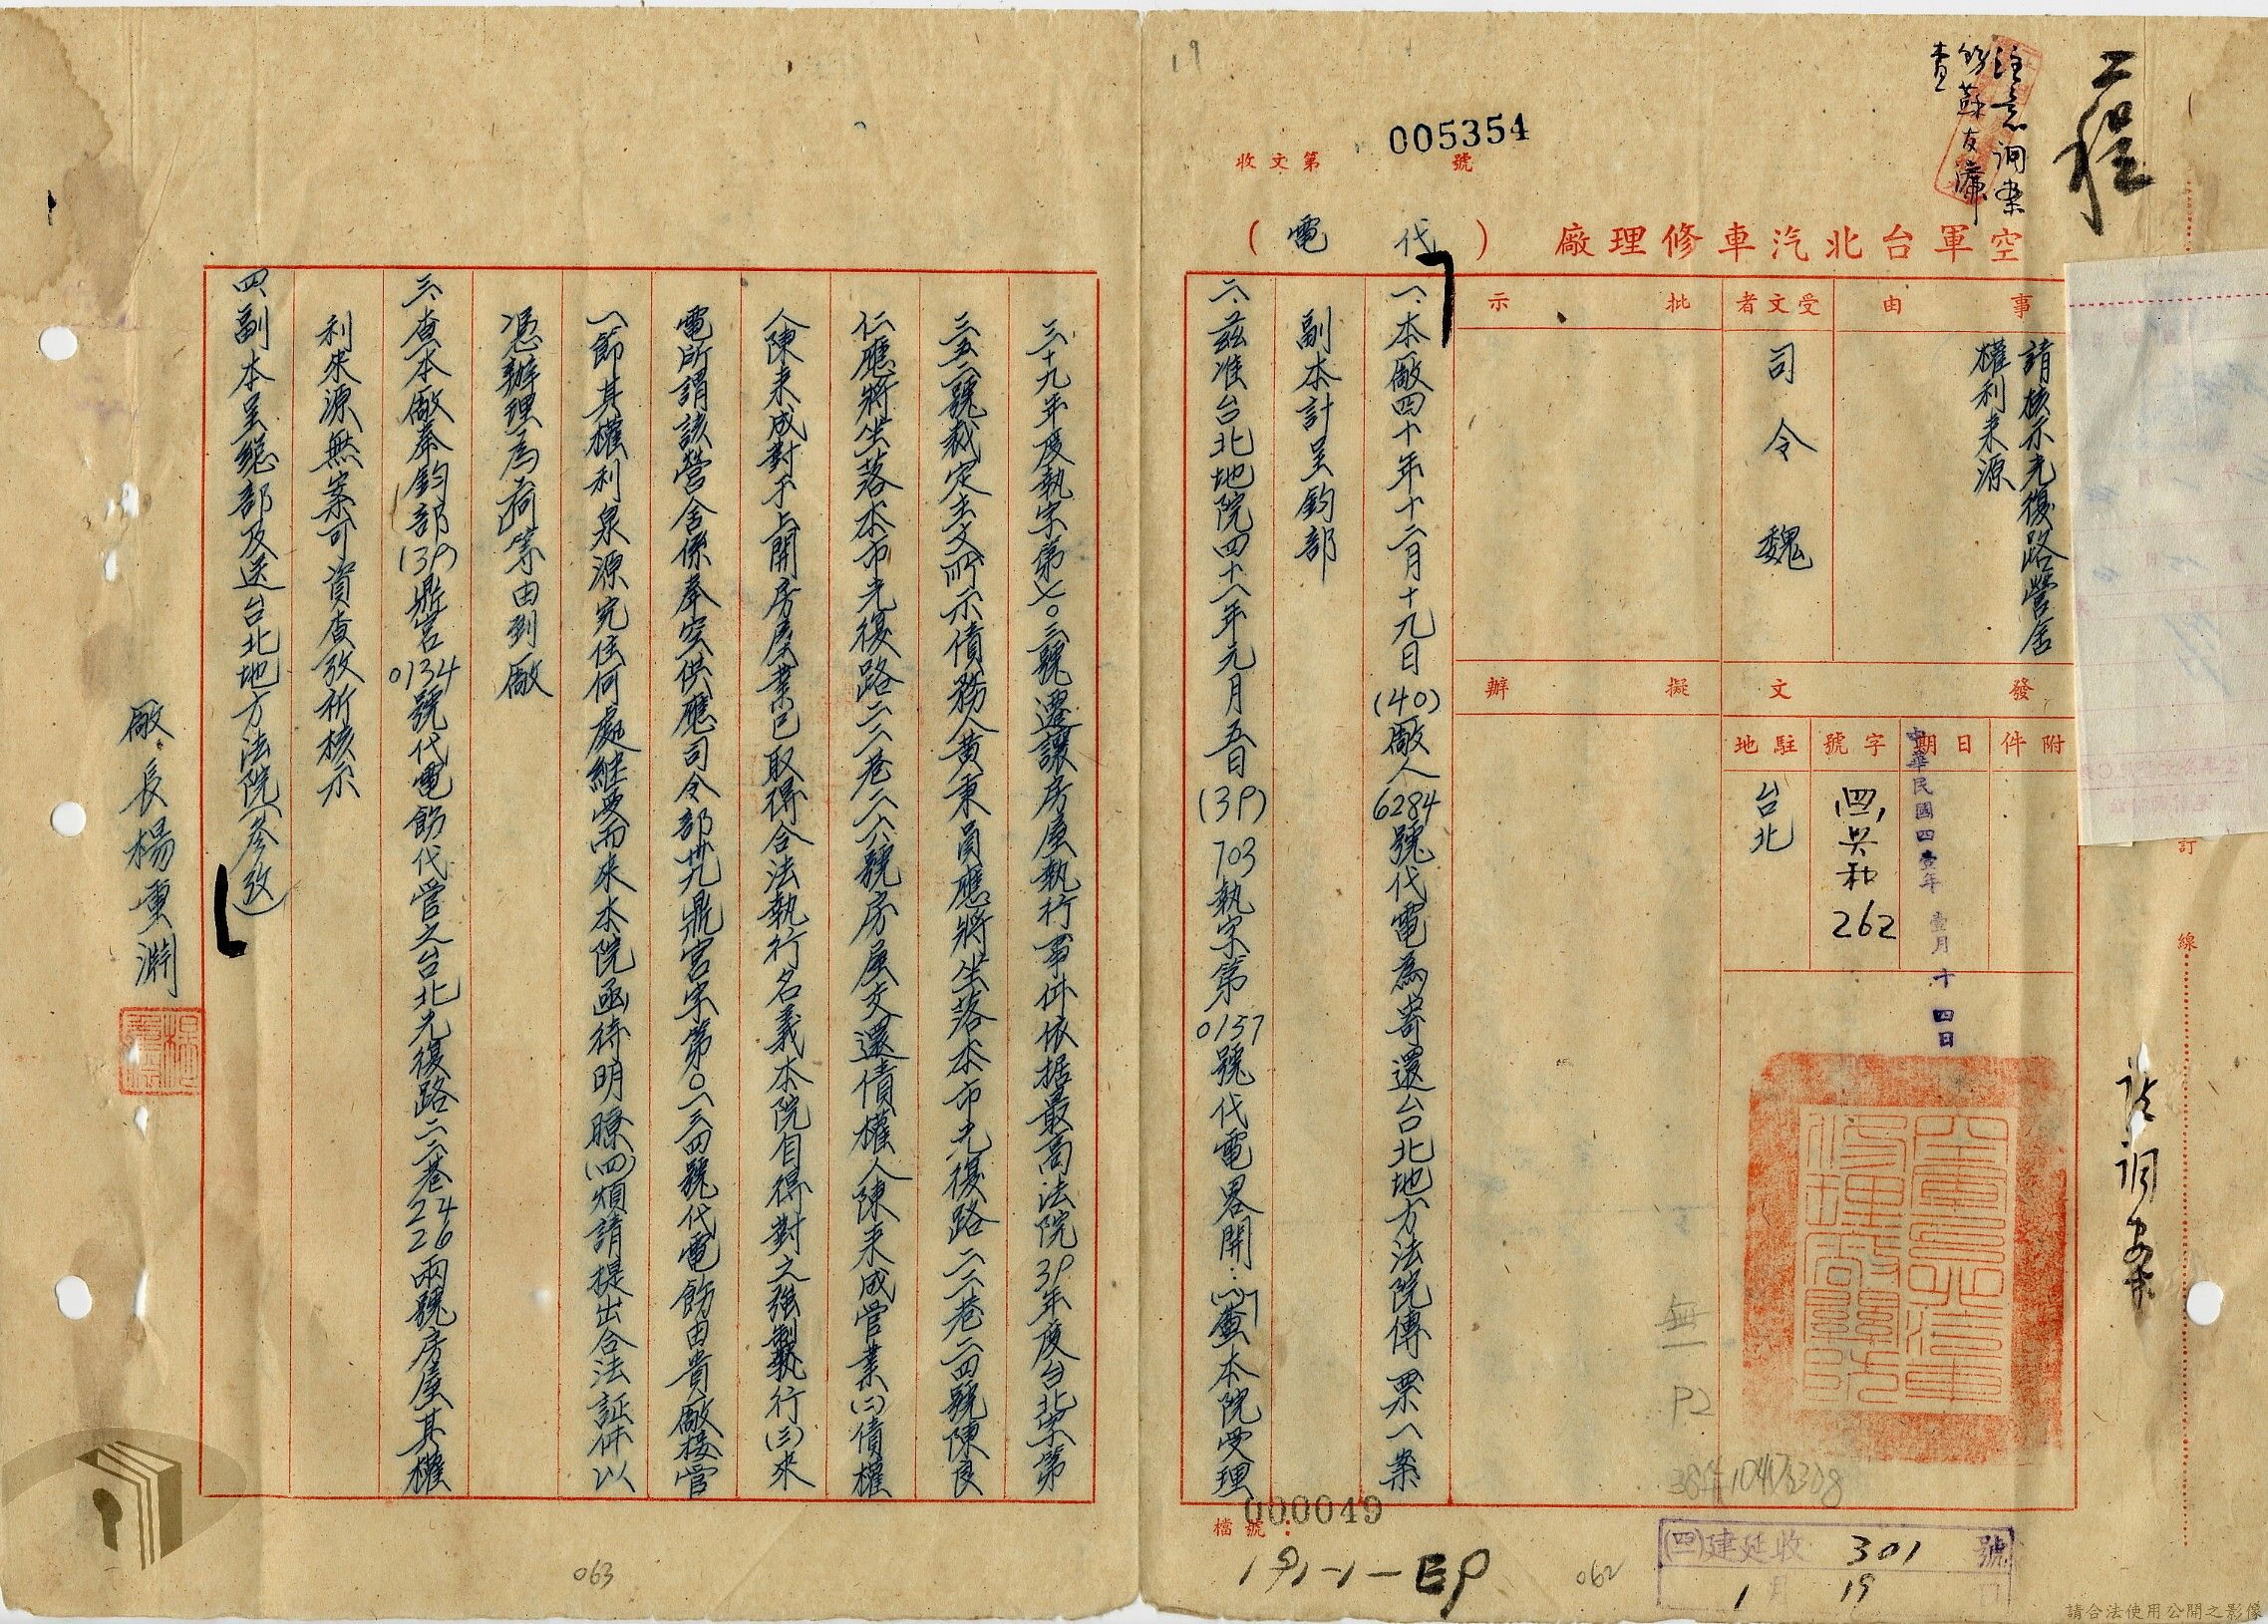 工程
注意調案
飭蘇友濂
查
19
收文第005354號
空軍台北汽車修理廠（代電）
事由
請核示光復路營舍
權利來源
受文者
司令魏
批示
擬辦
發文
附件
日期
中華民國四壹年壹月十四日
字號
262
駐地
台北
一、本廠四十年十二月十九日(40)廠人6284號代電為寄還台北地方法院傳票一案
副本計呈鈞部
二、茲准台北地院四十一年元月五日(39)703執字第0157號代電畧開：㈠查本院受理
三十九年度執字第七〇三號遷讓房屋執行事件依据最高法院39年度台北字第
三五二號裁定主文所示債務人黄東員應將坐落本市光復路二二巷二四號陳良
仁應將坐落本市光復路二二巷二六號房屋交還債權人陳来成管業㈡債權
人陳来成對于上開房屋業已取得合法執行名義本院自得對之強制執行㈢来
電所謂該營舍係奉空供應司令部卅九鼎宮字第〇一三四號代電飭由貴廠接管
一節其權利泉源究住何處継受而來本院亟待明瞭㈣煩請提出合法証件以
憑辦理為荷等由到廠
三、查本廠奉鈞部(39)鼎宮0134號代電飭代管之台北光復路二二巷24 26兩號房屋其權
利來源無案可資查攷祈核示
四、副本呈總部及送台北地方法院（參攷）
廠長楊重淵
訂
線
請調案
無
P2
檔號：
000049
191-1-EP
062
063
(四一)建延收301號
1月19日
請合法使用公開之影像